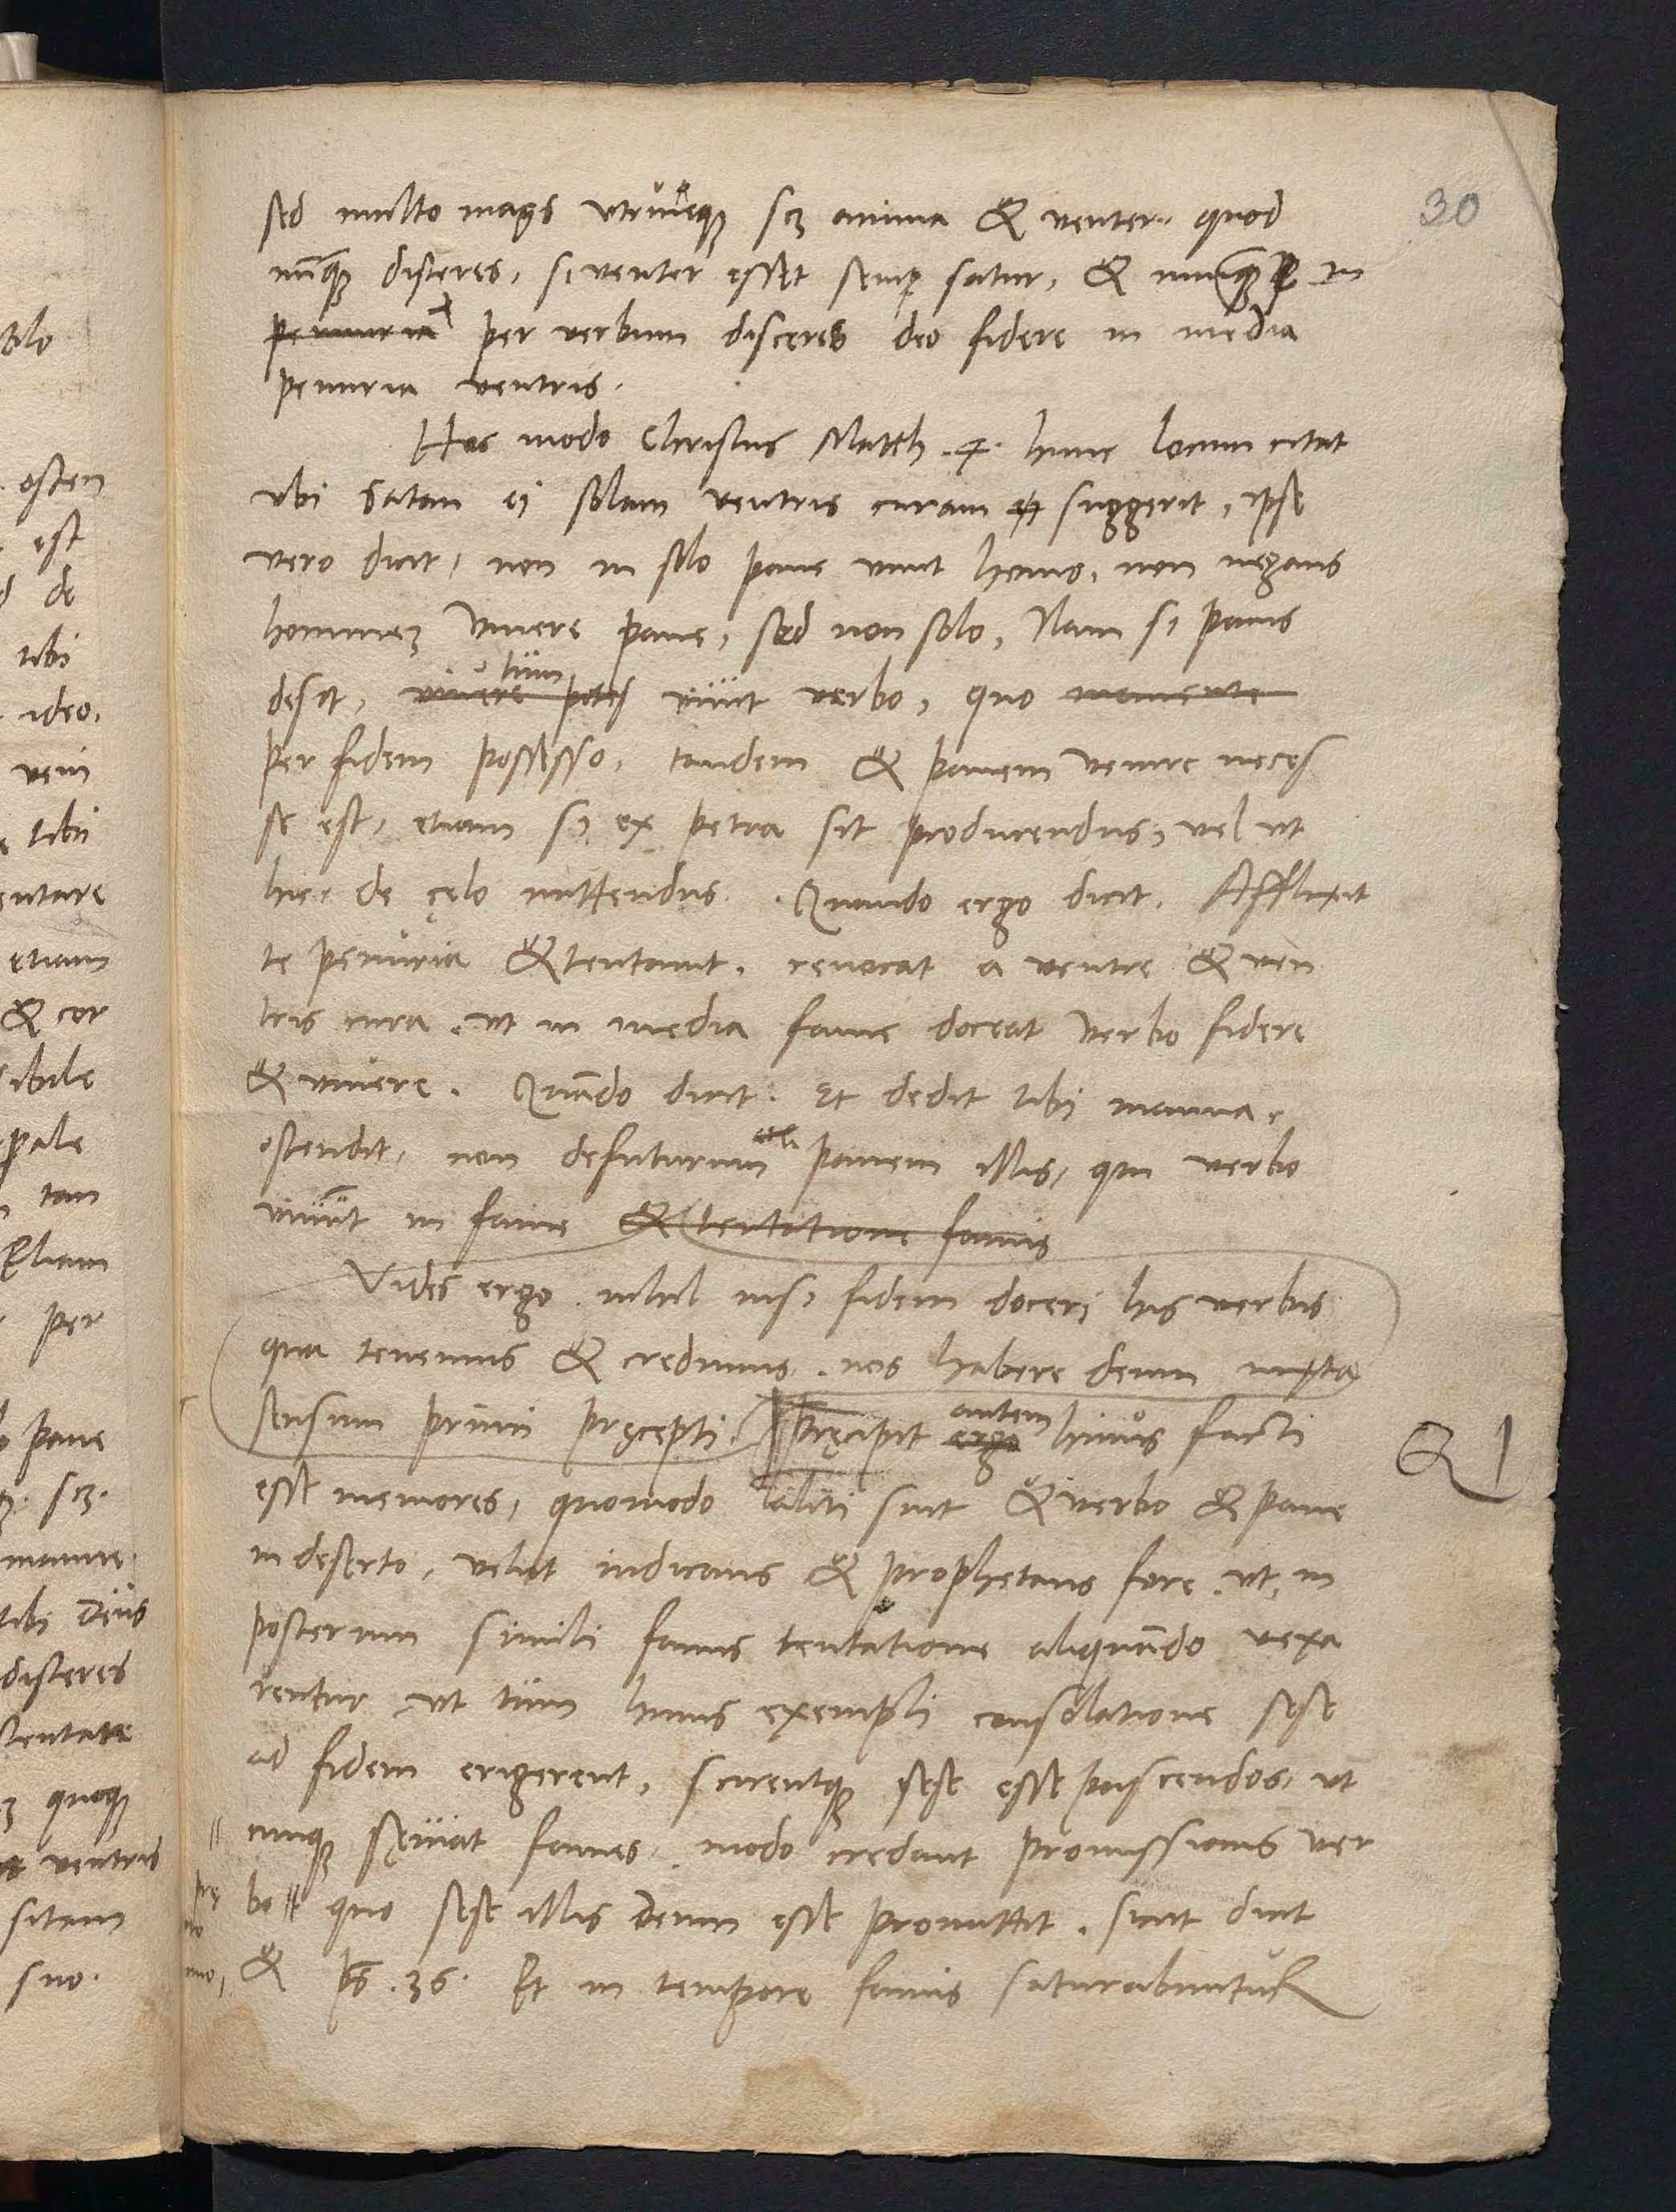 30
sed multo magis utrunque scꝫ anima & venter. quod
nunꝙ disceres, si venter esset semper satur, & nunquam in
penuria per verbum disceres deo fidere in media
penuria ventris.
Hoc modo Christus Matth. 4. hunc locum citat
ubi Satan ei solam ventris curam suggerit, ipse
vero dicit, non in solo pane vivit homo, non negans
hominem vivere pane, sed non solo, Nam si panis
desit, vivere potes tum vivit verbo, quo
per fidem possesso, tandem & panem venire neces
se est, etiam si ex petra sit producendus, vel ut
hic de cęlo mittendus. Quando ergo dicit. Afflixit
te penuria & tentavit. revocat a ventre & ven
tris cura, ut in media fame doceat verbo fidere
& vivere. Quando dicit. Et dedit tibi manna,
ostendit, non defuturum panem illis, qui verbo
vivunt in fame & tentatione famis
Vides ergo. nihil nisi fidem doceri his verbis
qua tenemus & credimus. nos habere deum iuxta
sensum primi pręcepti. Pręcipit ergo autem huius facti
esse memores, quomodo aliti sint & verbo & pane
in deserto, velut indicans & prophetans fore. ut in
posterum simili famis tentatione aliquando vexa
rentur, ut tum huius exempli consolatione sese
ad fidem erigerent, scirentque sese esse pascendos, ut
cunque sęviat fames, modo credant promissionis ver
bo quo sese illis Deum esse promittit. sicut dicit
& ps. 36. Et in tempore famis saturabuntur
osten
est
de
tibi
ideo.
veni
tibi
entare
etiam
& cor
ibile
tan
Eliam
per
pane
scꝫ.
tibi Deus
disceres
quoque
ventris
sitam
suo.